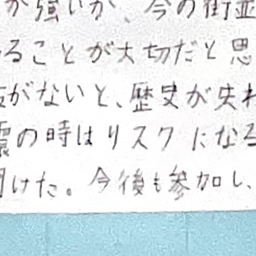 が強いが、今の街並
ることが大切だと思
がないと、歴史が失わ
震の時はリスクになる
けた。今後も参加し、